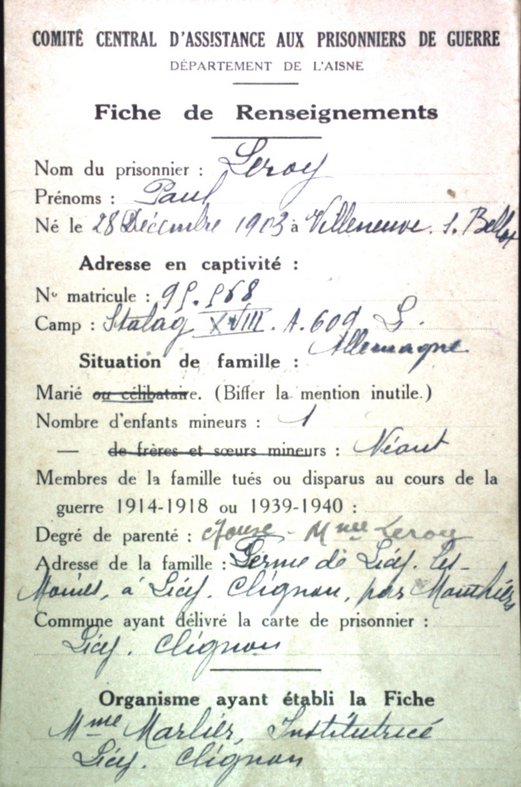 COMITÉ CENTRAL D'ASSISTANCE AUX PRISONNIERS DE GUERRE
DÉPARTEMENT DE L'AISNE
Fiche de Renseignements
Nom du prisonnier : Leroy
Prénoms : Paul
Né le 28 Décembre 1903 à Villeneuve. s. Bellot
Adresse en captivité :
No matricule :
Camp : Stalag XVIII. A. 609
Allemagne
Situation de famille :
Marié ou célibataire. (Biffer la mention inutile.)
Nombre d'enfants mineurs : 1
— de frères et sœurs mineurs : Néant
Membres de la famille tués ou disparus au cours de la
guerre 1914-1918 ou 1939-1940 :
Degré de parenté : épouse - Mme Leroy
Adresse de la famille : Ferme de Licy. les-
Moines, à Licy. Clignon, par Monthiers
Commune ayant délivré la carte de prisonnier :
Licy. Clignon
Organisme ayant établi la Fiche
Mme Marlier, Institutrice
Licy. Clignon